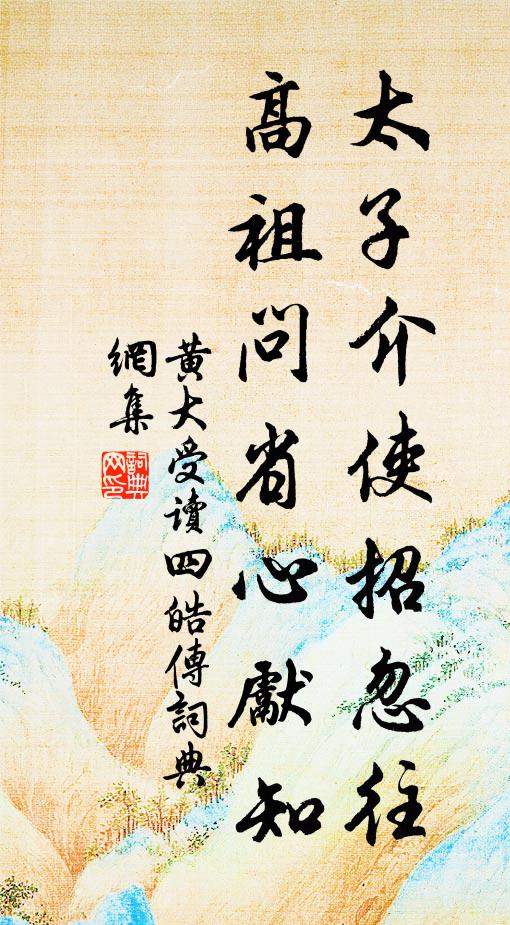 太子介使招忽往
高祖問省心獻知
黃大受讀四皓傳詞典
網集
詞典
网印